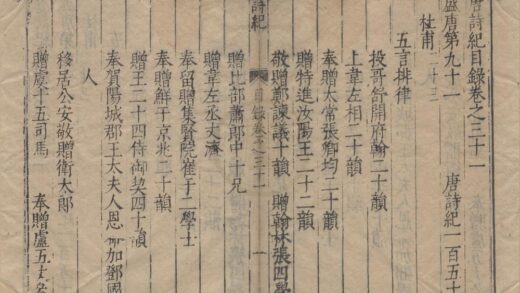 唐詩紀目錄卷之三十一
盛唐第九十一　唐詩紀一百五十
杜甫
五言排律
投哥舒開府翰二十韻
上韋左相二十韻
奉贈太常張卿均二十韻
贈特進汝陽王二十二韻
敬贈鄭諫議十韻　贈翰林張四學
詩紀　目錄卷之三十一　一
贈比部蕭郎中十兄
贈韋左丞丈濟
奉留贈集賢院崔于二學士
奉贈鮮于京兆二十韻
贈王二十四侍御契四十韻
奉賀陽城郡王太夫人恩命加鄧國
人
移居公安敬贈衛大郎
贈虞十五司馬　奉贈盧五丈